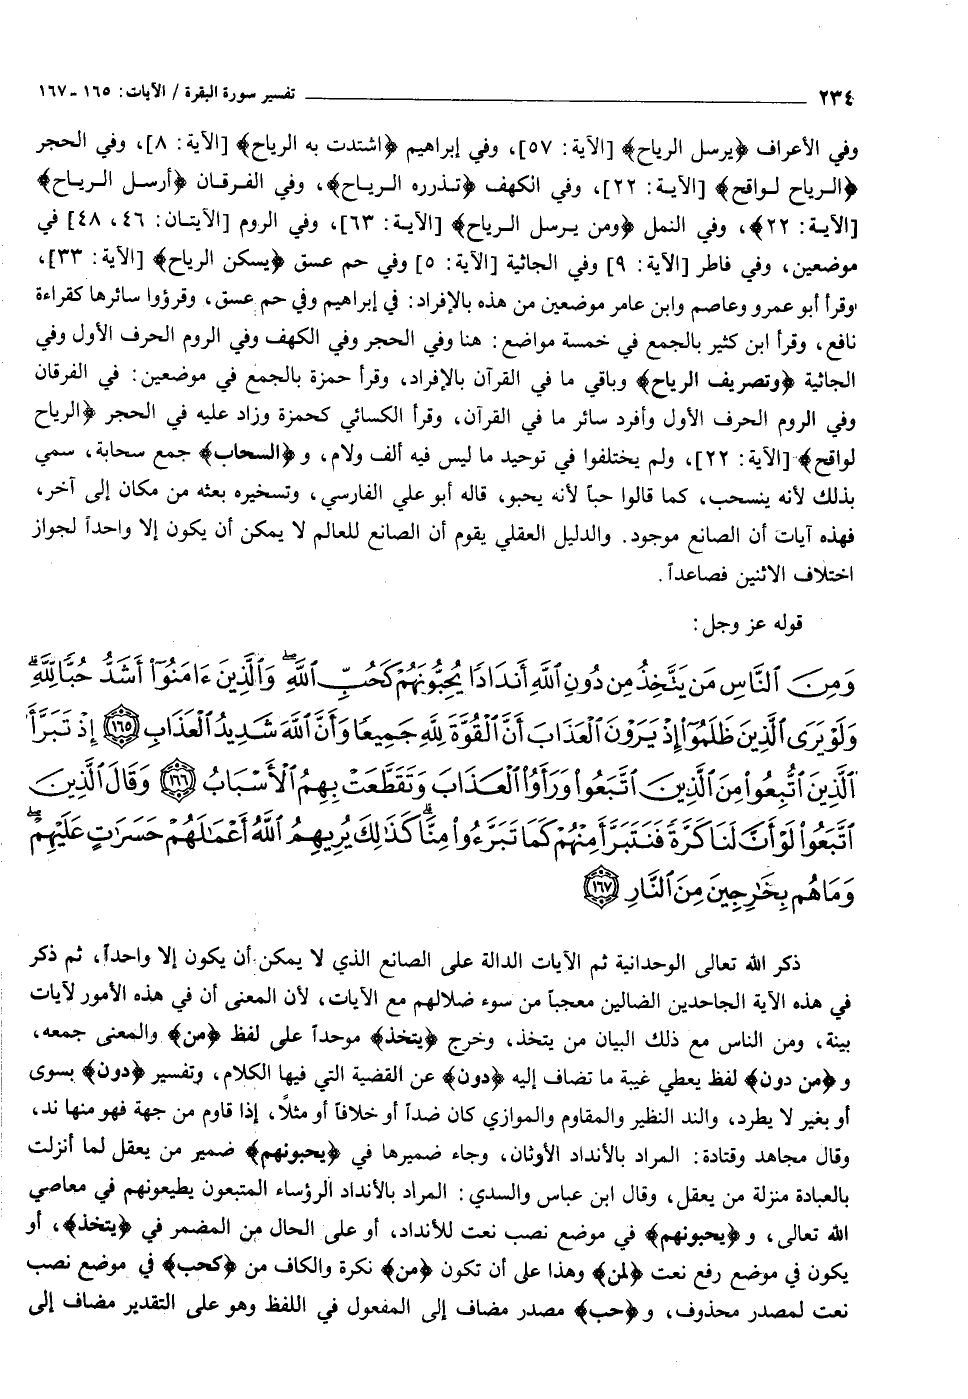 ٢٣٤ تفسير سورة البقرة / الآيات: ١٦٥ - ١٦٧
وفي الأعراف ﴿يرسل الرياح﴾ [الآية: ٥٧]، وفي إبراهيم ﴿اشتدت به الرياح﴾ [الآية: ٨]، وفي الحجر
﴿الرياح لواقح﴾ [الآية: ٢٢]، وفي الكهف ﴿تذرره الرياح﴾، وفي الفرقان ﴿أرسل الرياح﴾
[الآية: ٢٢﴾، وفي النمل ﴿ومن يرسل الرياح﴾ [الآية: ٦٣]، وفي الروم [الآيتان: ٤٦، ٤٨] في
موضعين، وفي فاطر [الآية: ٩] وفي الجاثية [الآية: ٥] وفي حم عسق ﴿يسكن الرياح﴾ [الآية: ٣٣]،
وقرأ أبو عمرو وعاصم وابن عامر موضعين من هذه بالإفراد: في إبراهيم وفي حم عسق، وقرؤوا سائرها كقراءة
نافع، وقرأ ابن كثير بالجمع في خمسة مواضع: هنا وفي الحجر وفي الكهف وفي الروم الحرف الأول وفي
الجاثية ﴿وتصريف الرياح﴾ وباقي ما في القرآن بالإفراد، وقرأ حمزة بالجمع في موضعين: في الفرقان
وفي الروم الحرف الأول وأفرد سائر ما في القرآن، وقرأ الكسائي كحمزة وزاد عليه في الحجر ﴿الرياح
لواقح﴾ [الآية: ٢٢]، ولم يختلفوا في توحيد ما ليس فيه ألف ولام، و ﴿السحاب﴾ جمع سحابة، سمي
بذلك لأنه ينسحب، كما قالوا حباً لأنه يحبو، قاله أبو علي الفارسي، وتسخيره بعثه من مكان إلى آخر،
فهذه آيات أن الصانع موجود. والدليل العقلي يقوم أن الصانع للعالم لا يمكن أن يكون إلا واحداً لجواز
اختلاف الاثنين فصاعداً.
قوله عز وجل:
وَمِنَ ٱلنَّاسِ مَن يَتَّخِذُ مِن دُونِ ٱللَّهِ أَندَادًا يُحِبُّونَهُمْ كَحُبِّ ٱللَّهِۖ وَٱلَّذِينَ ءَامَنُوٓا۟ أَشَدُّ حُبًّا لِّلَّهِۗ
وَلَوْ يَرَى ٱلَّذِينَ ظَلَمُوٓا۟ إِذْ يَرَوْنَ ٱلْعَذَابَ أَنَّ ٱلْقُوَّةَ لِلَّهِ جَمِيعًا وَأَنَّ ٱللَّهَ شَدِيدُ ٱلْعَذَابِ ١٦٥ إِذْ تَبَرَّأَ
ٱلَّذِينَ ٱتُّبِعُوا۟ مِنَ ٱلَّذِينَ ٱتَّبَعُوا۟ وَرَأَوُا۟ ٱلْعَذَابَ وَتَقَطَّعَتْ بِهِمُ ٱلْأَسْبَابُ ١٦٦ وَقَالَ ٱلَّذِينَ
ٱتَّبَعُوا۟ لَوْ أَنَّ لَنَا كَرَّةً فَنَتَبَرَّأَ مِنْهُمْ كَمَا تَبَرَّءُوا۟ مِنَّاۗ كَذَٰلِكَ يُرِيهِمُ ٱللَّهُ أَعْمَٰلَهُمْ حَسَرَٰتٍ عَلَيْهِمْۖ
وَمَا هُم بِخَٰرِجِينَ مِنَ ٱلنَّارِ ١٦٧
ذكر الله تعالى الوحدانية ثم الآيات الدالة على الصانع الذي لا يمكن أن يكون إلا واحداً، ثم ذكر
في هذه الآية الجاحدين الضالين معجباً من سوء ضلالهم مع الآيات، لأن المعنى أن في هذه الأمور لآيات
بينة، ومن الناس مع ذلك البيان من يتخذ، وخرج ﴿يتخذ﴾ موحداً على لفظ ﴿من﴾ والمعنى جمعه،
و﴿من دون﴾ لفظ يعطي غيبة ما تضاف إليه ﴿دون﴾ عن القضية التي فيها الكلام، وتفسير ﴿دون﴾ بسوى
أو بغير لا يطرد، والند النظير والمقاوم والموازي كان ضداً أو خلافاً أو مثلًا، إذا قاوم من جهة فهو منها ند،
وقال مجاهد وقتادة: المراد بالأنداد الأوثان، وجاء ضميرها في ﴿يحبونهم﴾ ضمير من يعقل لما أنزلت
بالعبادة منزلة من يعقل، وقال ابن عباس والسدي: المراد بالأنداد الرؤساء المتبعون يطيعونهم في معاصي
الله تعالى، و ﴿يحبونهم﴾ في موضع نصب نعت للأنداد، أو على الحال من المضمر في ﴿يتخذ﴾، أو
يكون في موضع رفع نعت ﴿لمن﴾ وهذا على أن تكون ﴿من﴾ نكرة والكاف من ﴿كحب﴾ في موضع نصب
نعت لمصدر محذوف، و ﴿حب﴾ مصدر مضاف إلى المفعول في اللفظ وهو على التقدير مضاف إلى